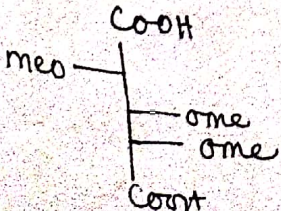 COOH
meo
ome
ome
COOH